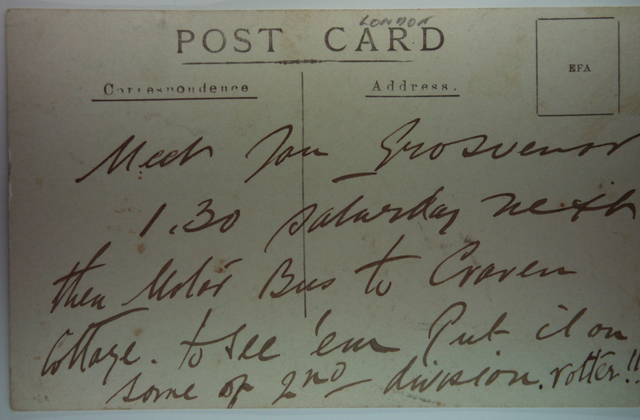 LONDON
POST CARD
Correspondence Address.
EFA
Meet you Grosvenor
1.30 saturday next
then Motor Bus to Craven
Cottage. to see 'em Put it on
some of 2nd division. rotter!!